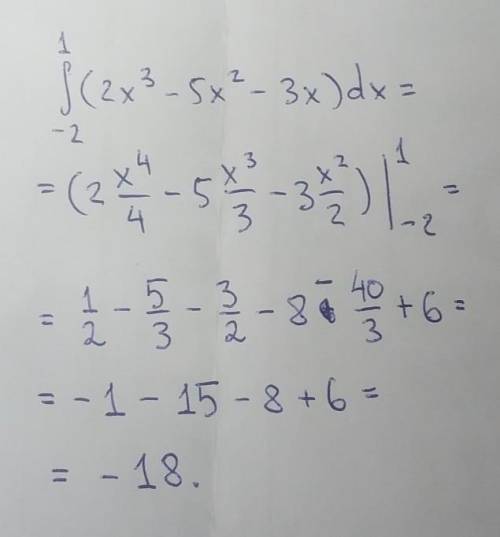 ∫₋₂¹ (2x³ - 5x² - 3x) dx =
= (2 x⁴/4 - 5 x³/3 - 3 x²/2) |₋₂¹ =
= 1/2 - 5/3 - 3/2 - 8 - 40/3 + 6 =
= - 1 - 15 - 8 + 6 =
= - 18.